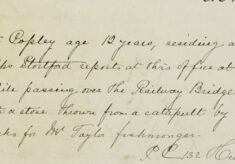 Copley age 12 years, residing a
Stortford reports at this office at
ile passing over the Railway Bridge
a stone thrown from a catapult by
ks for Mr Taylor fishmonger.
P.C. 132 H